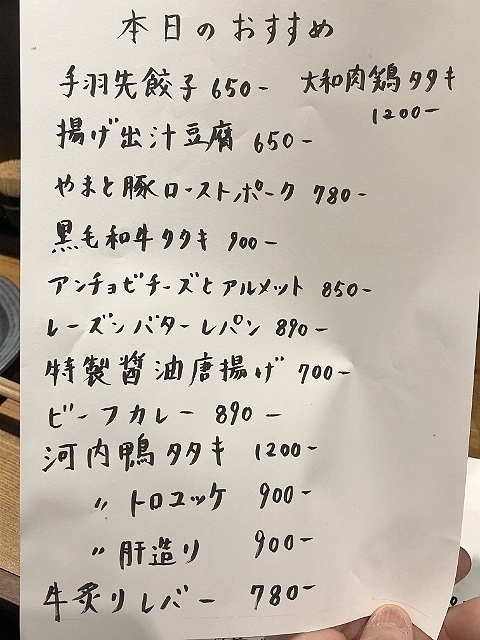 本日のおすすめ
手羽先餃子 650-
大和肉鶏タタキ
1200-
揚げ出汁豆腐 650-
やまと豚ローストポーク 780-
黒毛和牛タタキ 900-
アンチョビチーズとアルメット 850-
レーズンバターレパン 890-
特製醤油唐揚げ 700-
ビーフカレー 890-
河内鴨タタキ 1200-
〃 トロユッケ 900-
〃 肝造り 900-
牛炙りレバー 780-